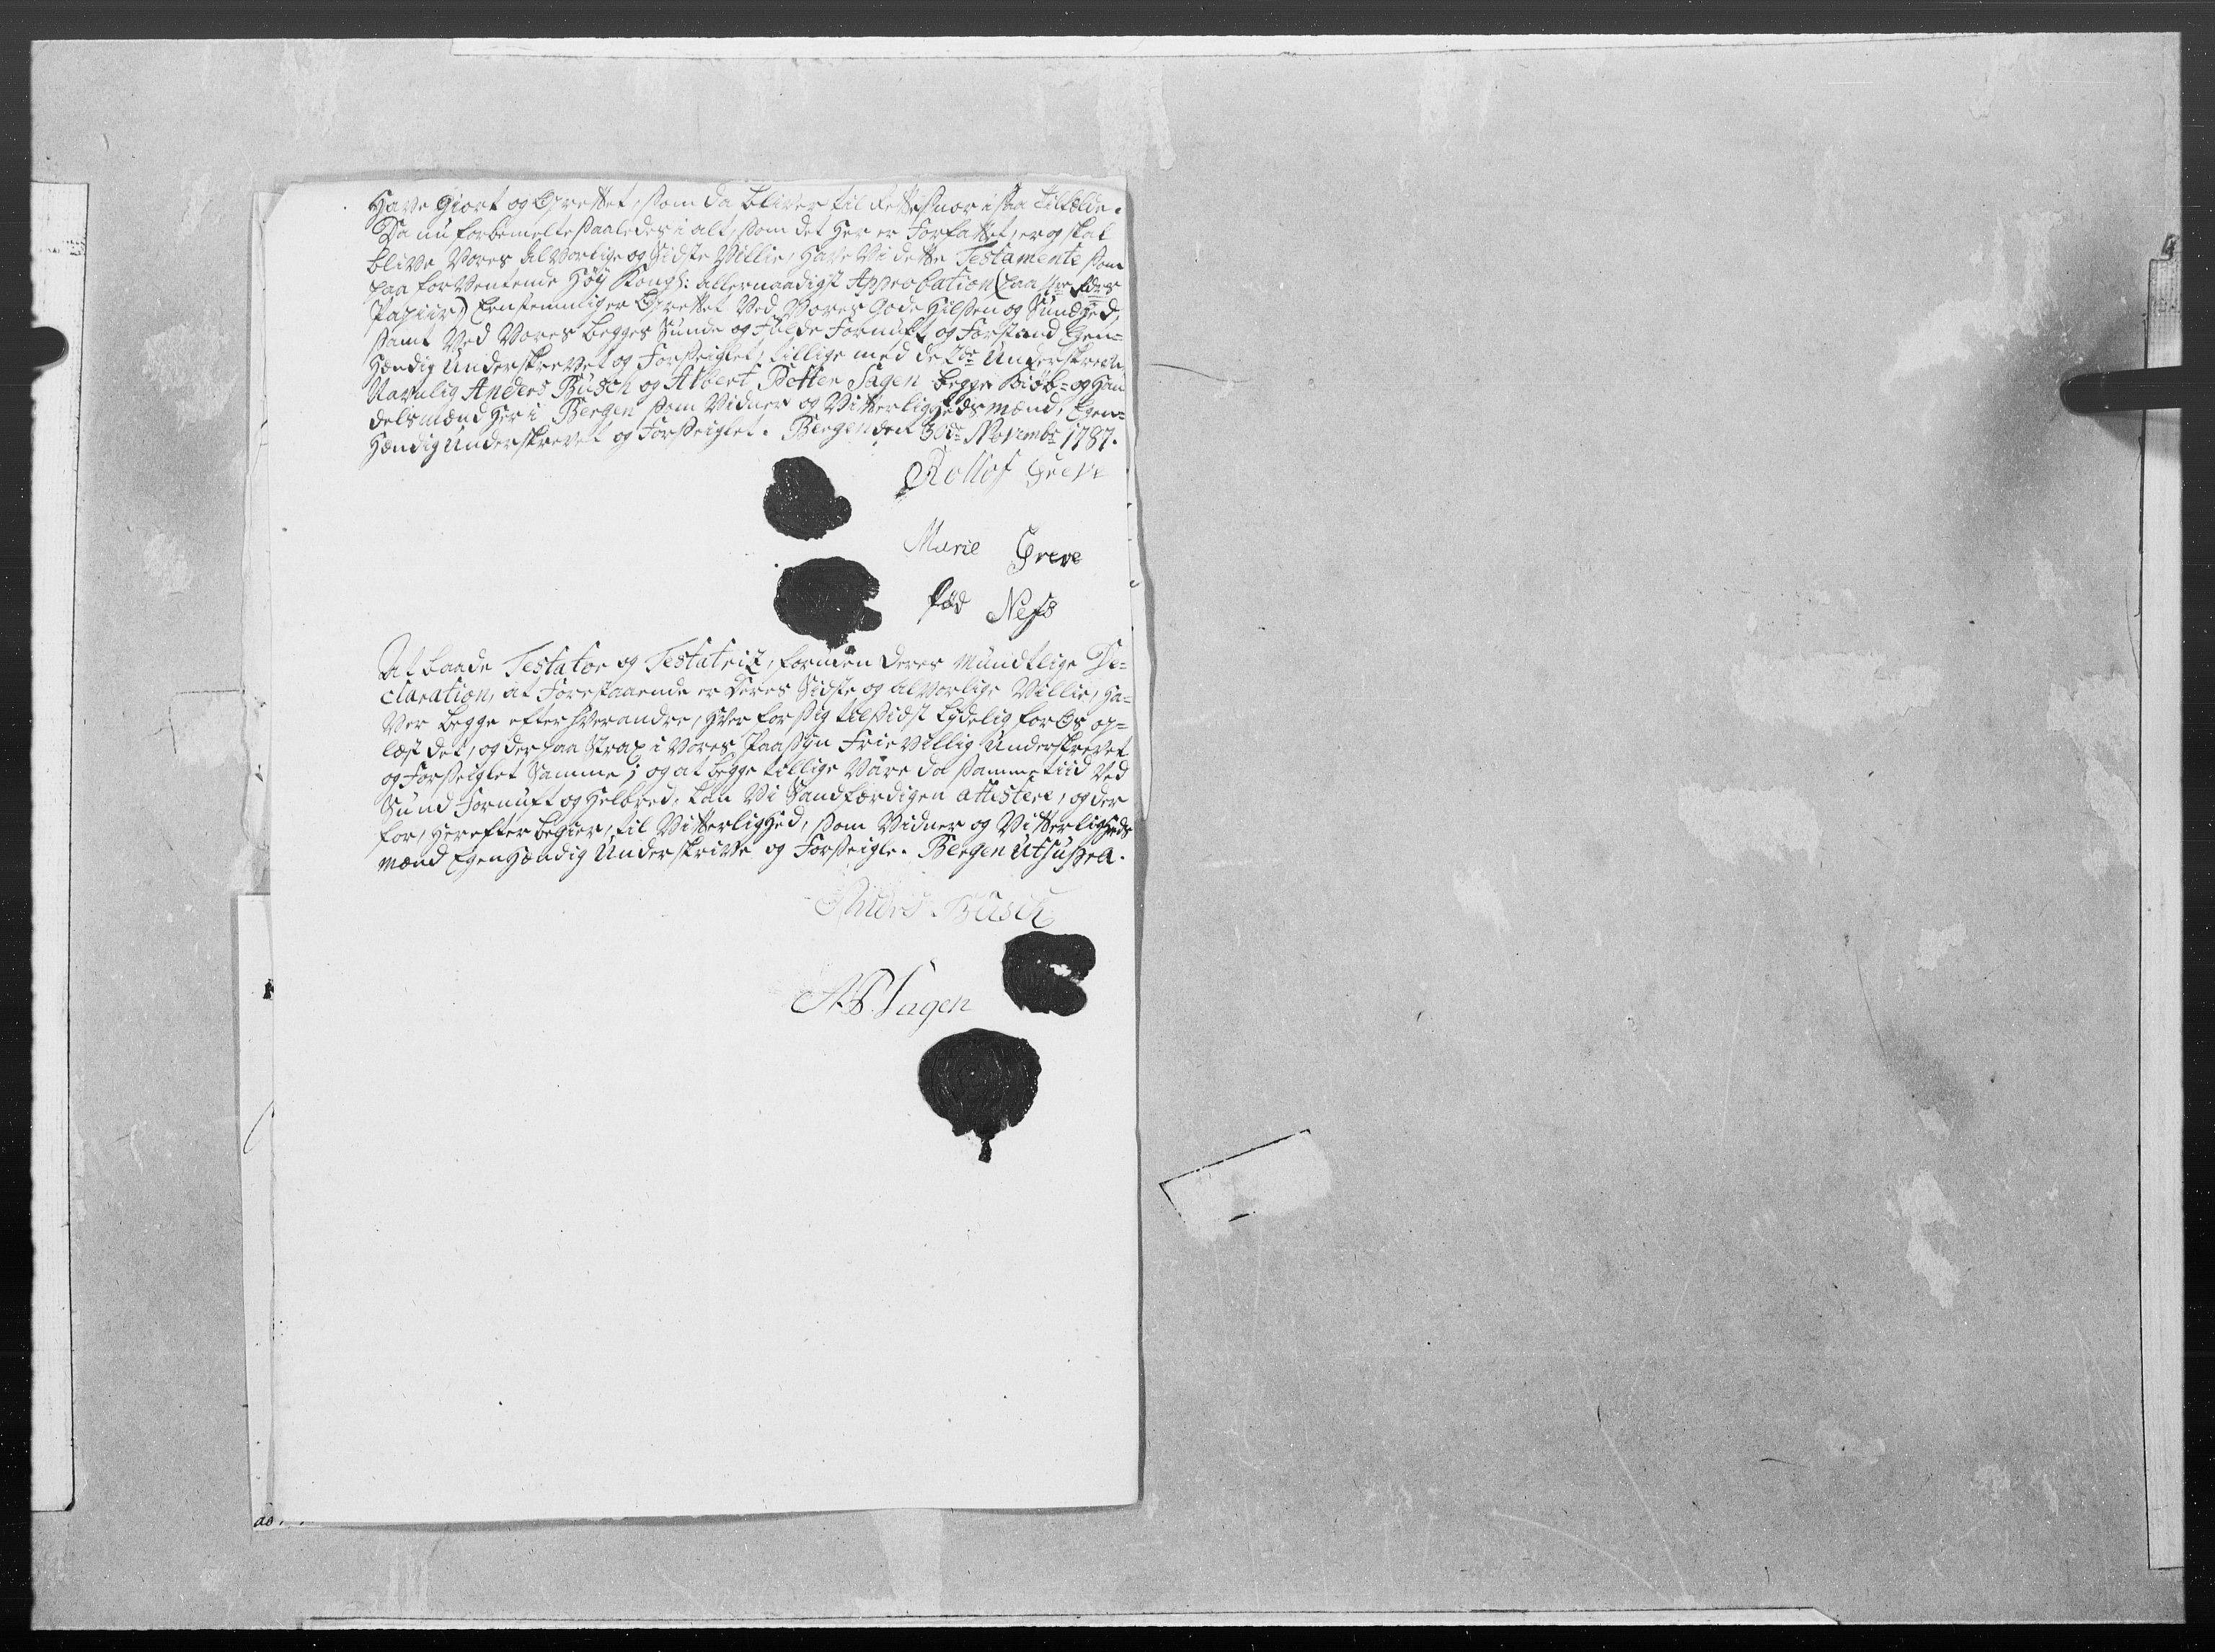 Have Giort og Oprettet, som da bliver til Rettesnor i saa tilfælde.
Da nu forbemelte saaledes i alt, som det Her er Forfattet, er og skal
blive Vores Alvorlige og Sidste Villie, Have Vi dette Testamente som
paa forventende Høy Kongl: allernaadigst Approbation (paa
Papiir) Eenstemmiger Oprettet Ved Vores Gode Hilsen og Sundhed,
samt Ved Vores begges Sunde og Fulde Fornuft og Forstand Egen-
Hændig Underskrevet og Forseiglet, tillige med de 2de Underskrevne
Navnlig Anders Büsch og Albert Petter Sagen begge Kiøb- og Han
delsmænd Her i Bergen som Vidner og Vitterligheds mænd, Egen-
Hændig Underskrevet og Forseiglet. Bergen den 30de Novembr 1787.
Rollof Greve
Marie Greve
Fød Ness
At baade Testator og Testatrix, foruden Deres Mundtlige De-
claration, at Forestaaende er Deres Sidste og Alvorlige Villie, Ha-
ver begge efter Hverandre, Hver for sig tilsidst lydelig for Os op-
læst det, og der paa Strax i Vores Paasyn Frievillig Underskrevet
og Forseiglet Samme; og at begge tillige Vare da samme tiid Ved
Sund Fornuft og Helbred, kan Vi Sandfærdigen attestere, og der
for, Herefter begier, til Vitterlighed, som Vidner og Vitterligheds
mænd Egenhændig Underskrive og Forseigle. Bergen Ut supra.
Anders Büsch
A. P. Sagen